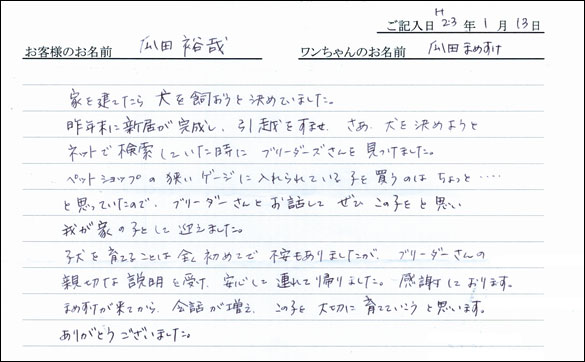 ご記入日 H23年1月13日
お客様のお名前 瓜田裕哉 ワンちゃんのお名前 瓜田まめすけ
家を建てたら犬を飼おうと決めていました。
昨年末に新居が完成し、引越をすませ、さあ、犬を決めようと
ネットで検索していた時にブリーダーズさんを見つけました。
ペットショップの狭いゲージに入れられている子を買うのはちょっと‥‥
と思っていたので、ブリーダーさんとお話して ぜひ この子をと思い
我が家の子として迎えました。
子犬を育てることは全く初めてで不安もありましたが、ブリーダーさんの
親切な説明を受け、安心して連れて帰りました。感謝しております。
まめすけが来てから、会話が増え、この子を大切に育てていこうと思います。
ありがとうございました。